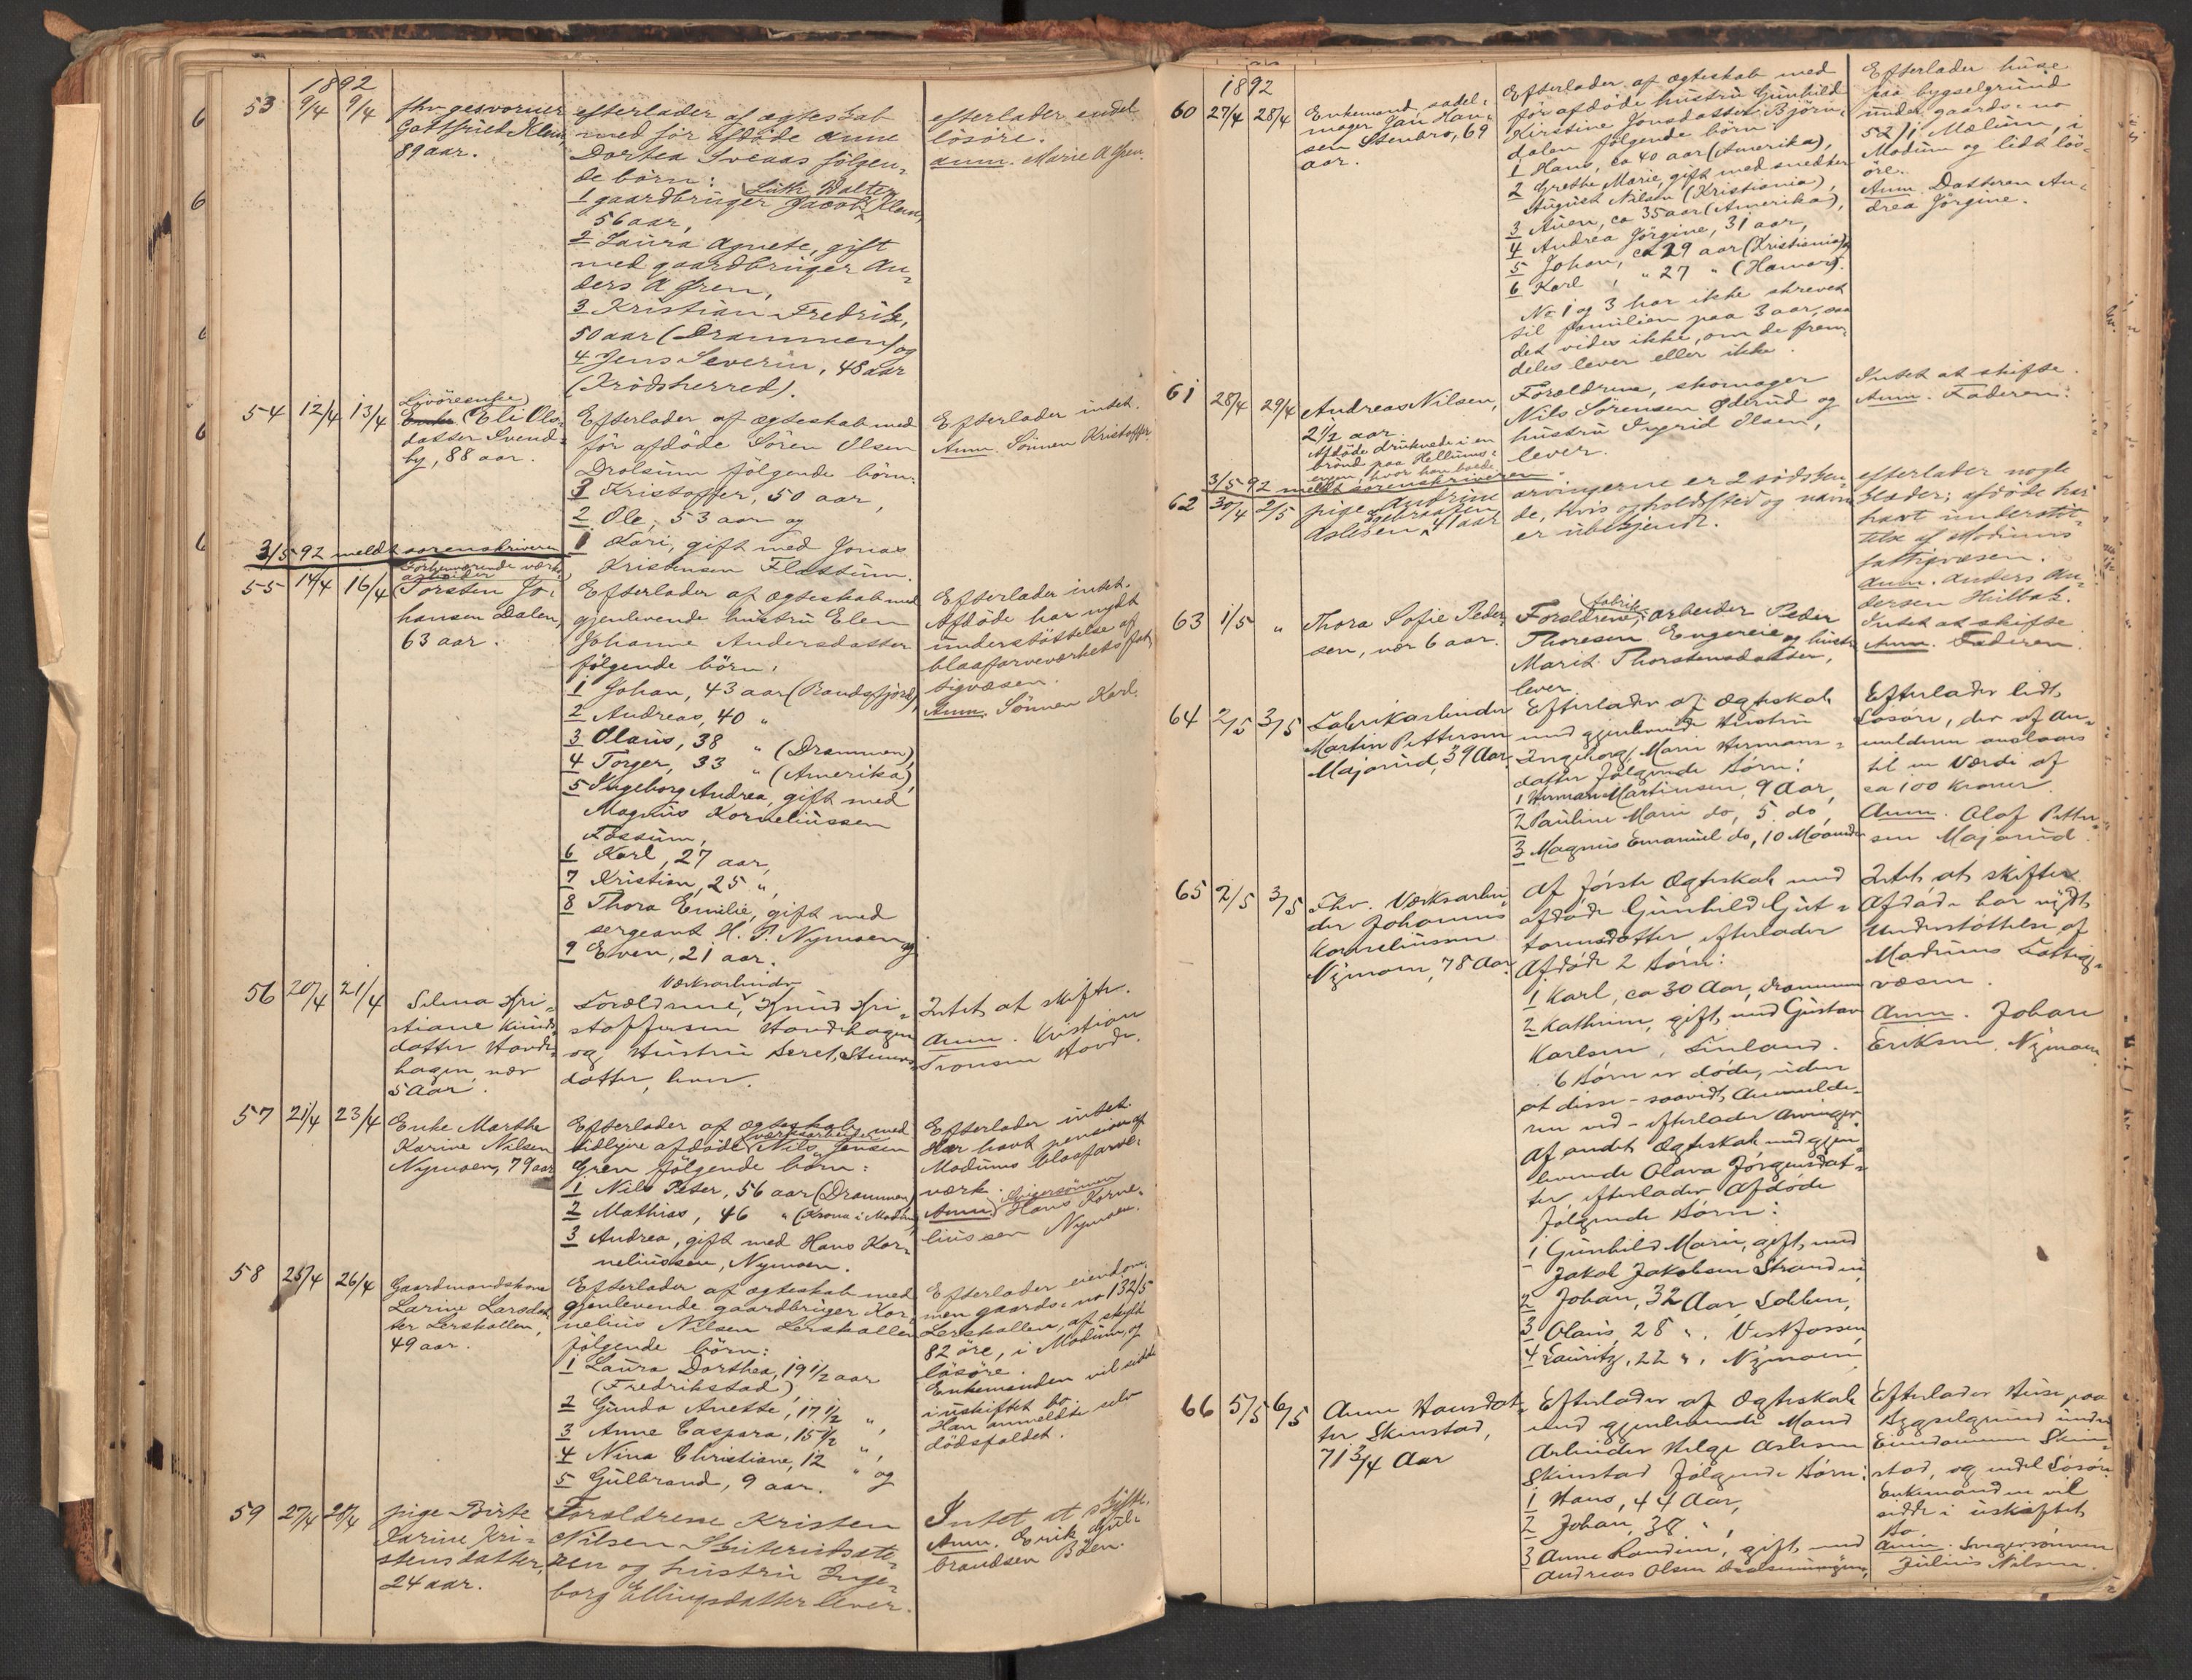 1892
53 9/4 9/4 fhv gesvorner
Gottfried Klem,
89 aar.
efterlader af ægteskab
med før afdøde Anne
Dortea Sveaas følgen-
de børn:
1 gaardbruger Jacob Luth Walter Klem,
56 aar,
2 Laura Agnete, gift
med gaardbruger An-
ders A Gren,
3 Kristian Fredrik,
50 aar (Drammen) og
4 Jens Severin, 48 aar
(Krødsherred).
efterlader endel
løsøre.
Anm. Marie A Gren.
54 12/4 13/4 Livøreenke
Enke Eli Ols-
datter Svend-
by, 88 aar.
Efterlader af ægteskab med
før afdøde Søren Olsen
Drolsum følgende børn:
3 Kristoffer, 50 aar,
2 Ole, 53 aar og
1 Kari, gift med Jonas
Kristensen Flattum.
Efterlader intet.
Anm. Sønnen Kristoffer.
3/5 92 meldt sorenskriveren
55 14/4 16/4 Forhenværende værks-
arbeider
Torsten Jo-
hansen Dalen,
63 aar.
Efterlader af ægteskab med
gjenlevende hustru Elen
Johanne Andersdatter
følgende børn:
1 Johan, 43 aar (Randsfjord),
2 Andreas, 40 "
3 Olaus, 38 " (Drammen),
4 Torger, 33 " (Amerika),
5 Ingeborg Andrea, gift med
Magnus Korneliussen
Fossum,
6 Karl, 27 aar,
7 Kristian, 25 ",
8 Thora Emilie, gift med
sergeant H. P. Nymoen og
9 Even, 21 aar.
Efterlader intet.
Afdøde har nydt
understøttelse af
blaafarveværkets fat-
tigvæsen.
Anm. Sønnen Karl.
56 20/4 21/4 Selma Kri-
stiane Knuds-
datter Hovde-
hagen, nær
5 Aar.
Værksarbeider
Forældrene, Knud Kri-
stoffersen Hovdehagen
og Hustru Beret Steners-
datter, lever.
Intet at skifte.
Anm. Kristian
Tronsen Hovde.
57 21/4 23/4 Enke Marthe
Karine Nilsen
Nymoen, 79 aar
Efterlader af ægteskab med
tidligere afdøde værksarbeider Nils Jensen
Gren følgende børn:
1 Nils Peter, 56 aar (Drammen)
2 Mathias, 46 " (Krona i Modum)
3 Andrea, gift med Hans Kor-
neliussen, Nymoen.
Efterlader intet.
Har havt pension af
Modums blaafarve-
værk.
Anm. Svigersønnen Hans Korne-
liussen Nymoen.
58 25/4 26/4 Gaardmandskone
Larine Larsdat-
ter Lerskallen,
49 aar.
Efterlader af ægteskab med
gjenlevende gaardbruger Kor-
nelius Nilsen Lerskallen
følgende børn:
1 Laura Dorthea, 19 1/2 aar
(Fredrikstad),
2 Gunda Anette, 17 1/2 "
3 Anne Caspara, 15 1/2 ",
4 Nina Christiane, 12 ",
5 Gulbrand, 9 aar. " og
Efterlader eiendom-
men gaards-no 132/5
Lerskallen, af skyld
82 øre, i Modum, og
løsøre.
Enkemanden vil sidde
i uskiftet bo.
Han anmeldte selv
dødsfaldet.
59 27/4 28/4 pige Birte
Karine Kri-
stensdatter,
24 aar.
Forældrene Kristen
Nilsen
og hustru Inge-
borg Ellingsdatter lever.
Intet at skifte.
Anm. Enik Gul-
brandsen Böen.
1892
60 27/4 28/4 Enkemand sadel-
mager Jan Han-
sen Stenbro, 69
aar.
Efterlader af ægteskab med
før afdøde hustru Gunhild
Kirstine Jonsdatter Björn-
dalen følgende børn:
1 Hans, ca 40 aar (Amerika),
2 Grethe Marie, gift med snedker
August Nilsen (Kristiania),
3 Auen, ca 35 aar (Amerika),
4 Andrea Jörgine, 31 aar,
5 Johan, ca 29 aar (Kristiania) og
6 Karl, " 27 " (Hamar).
No 1 og 3 har ikke skrevet
til familien paa 3 aar, saa
det vides ikke, om de frem-
deles lever eller ikke.
Efterlader huse
paa bygselgrund
under gaards-no
52/1 Mælum, i
Modum og lidt løs-
øre.
Anm. Datteren An-
drea Jörgine.
61 28/4 29/4 Andreas Nilsen,
2 1/2 aar.
Afdøde druknede i en
brønd paa Hellums-
eien, hvor han boede.
Forældrene, skomager
Nils Sørensen Öderud og
hustru Ingrid Olsen,
lever.
Intet at skifte.
Anm. Faderen.
3/5 92 meldt sorenskriveren
62 30/4 2/5 pige Andrine
Aslesen 41 aar
arvingerne er 2 sødsken-
de, hvis opholdssted og navn
er ubekjendt.
efterlader nogle
klæder; afdøde har
havt understøt-
telse af Modums
fattigvæsen.
Anm. Anders An-
dersen Hulbak.
63 1/5 " Thora Sofie Peder-
sen, nær 6 aar.
Forældrene, fabrik-arbeider Peder
Thoresen Engereie og hustru
Marit Thorstensdatter,
lever.
Intet at skifte
Anm. Faderen.
64 2/5 3/5 Fabrikarbeider
Martin Pettersen
Majorud, 39 Aar.
Efterlader af Ægteskab
med gjenlevende Hustru
Ingeborg Marie Hermans-
datter følgende Børn:
1 Herman Martinsen, 9 Aar,
2 Pauline Marie do, 5 do,
3 Magnus Emanuel do, 10 Maaneder
Efterlader lidt
Løsøre, der af An-
melderen anslaaes
til en Værdi af
ca 100 Kroner.
Anm. Olaf Petter-
sen Majorud.
65 2/5 3/5 Fhv. Værksarbei-
der Johannes
Korneliussen
Nymoen, 78 Aar.
Af første Ægteskab med
afdøde Gunhild Gut-
tormsdatter, efterlader
Afdøde 2 Børn:
1 Karl, ca 30 Aar, Drammen
2 Kathrine, gift med Gustav
Karlsen, Finland.
6 Børn er døde, uden
at disse - saavidt Anmelde-
ren ved - efterlader Arvinger.
Af andet Ægteskab med gjen-
levende Olava Jørgensdat-
ter efterlader Afdøde
følgende Børn:
1 Gunhild Marie, gift med
Jakob Jakobsen Strandeie,
2 Johan, 32 Aar,
3 Olaus, 28 ", Vestfossen,
4 Lauritz, 22 ", Nymoen
Intet at skifte
Afdøde har nydt
Understøttelse af
Modums Fattig-
væsen.
Anm. Johan
Eriksen, Nymoen
66 5/5 6/5 Anne Hansdat-
ter Skinstad,
71 3/4 Aar
Efterlader af Ægteskab
med gjenlevende Mand
Arbeider Helge Aslesen
Skinstad følgende Børn:
1 Hans, 44 Aar,
2 Johan, 38 ",
3 Anne Randine, gift med
Andreas Olsen
Efterlader Huse paa
Bygselgrund under
Eiendommen Skin-
stad, og endel Løsøre
Enkemanden vil
sidde i uskiftet
Bo.
Anm. Svigersønnen
Julius Nilsen.